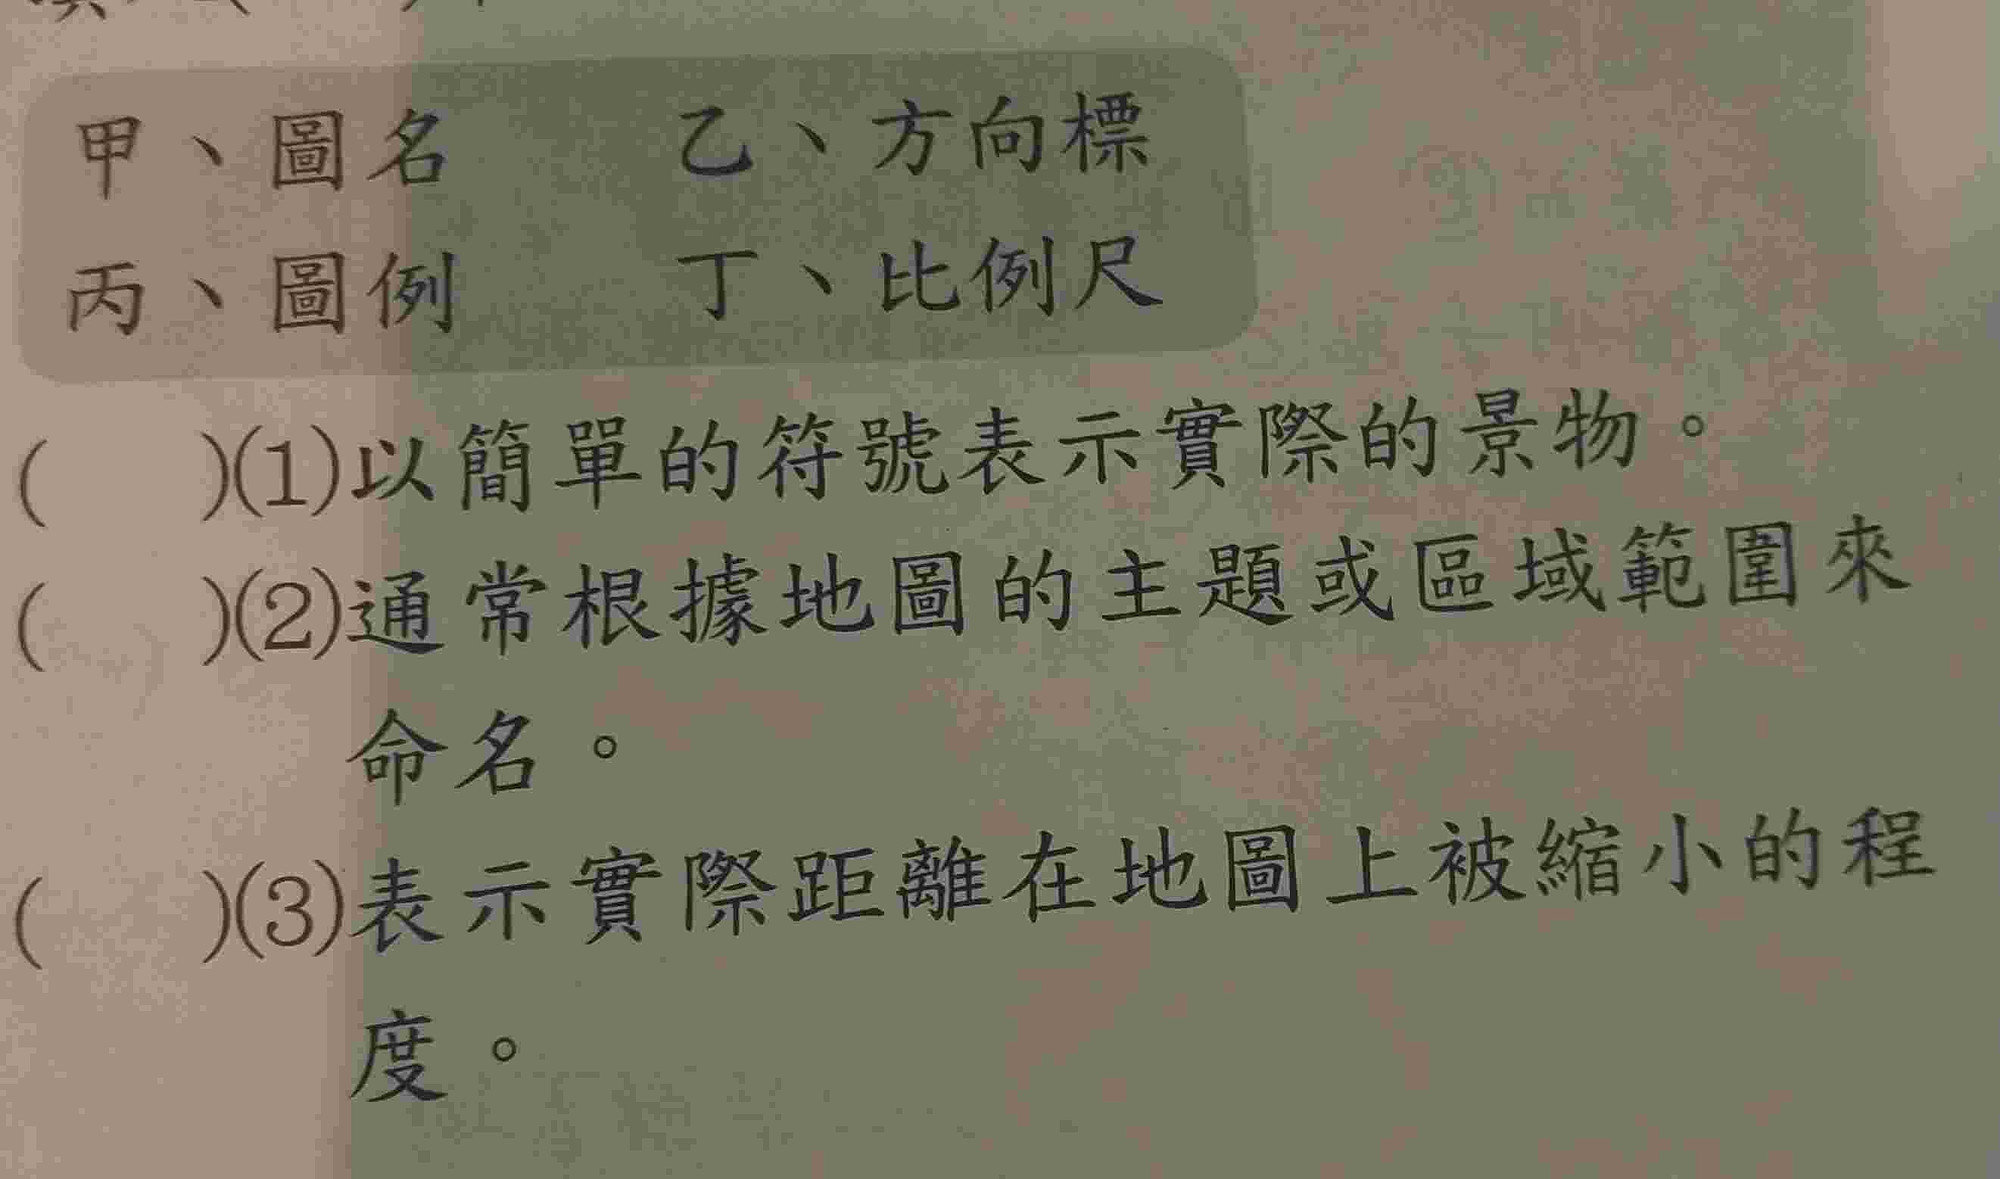 甲、圖名 乙、方向標
丙、圖例 丁、比例尺
( )(1)以簡單的符號表示實際的景物。
( )(2)通常根據地圖的主題或區域範圍來
命名。
( )(3)表示實際距離在地圖上被縮小的程
度。